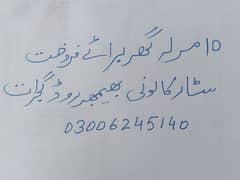 10 مرلہ گھر برائے فروخت
سٹار کالونی بھمبھر روڈ گجرات
03006245140